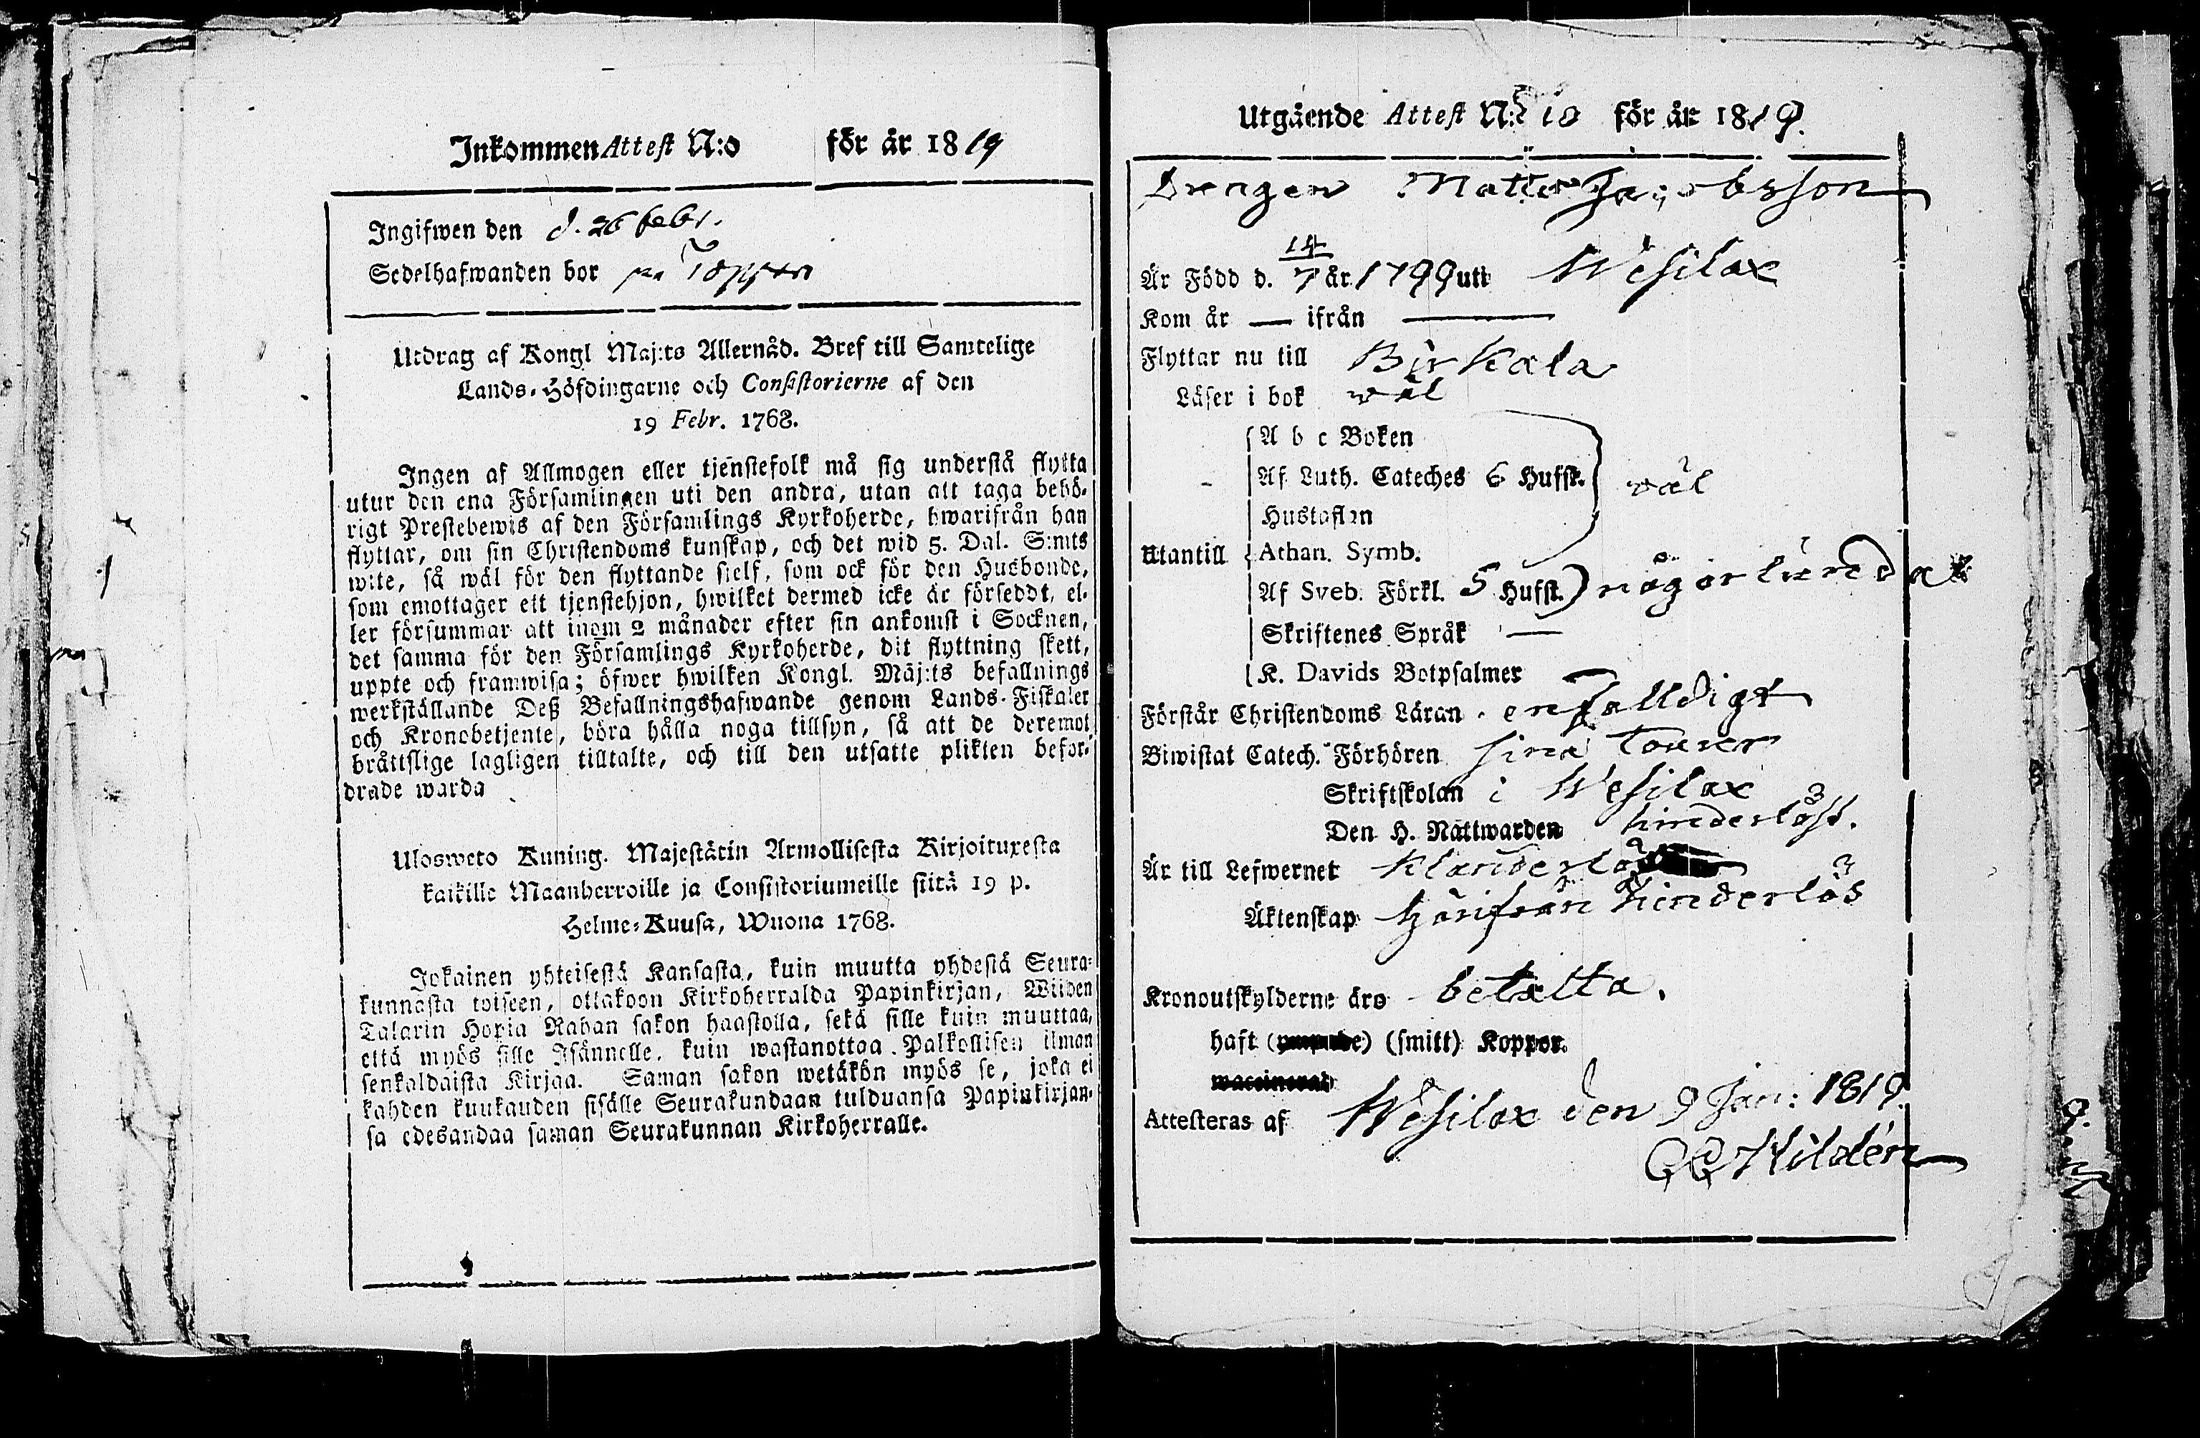 Inkommen Attest N:o för år 1819
Ingifwen den d. 26 febr.
Sedelhafwanden bor på
Utdrag af Kongl Maj:ts Allernåd. Bref till Samtelige
Lands-Höfdingarne och Consistorierne af den
19 Febr. 1768.
Ingen af Allmogen eller tjenstefolk må sig understå flytta
utur den ena Församlingen uti den andra, utan att taga behö-
rigt Prestebewis af den Församlings Kyrkoherde, hwarifrån han
flyttar, om sin Christendoms kunskap, och det wid 5. Dal. S:mts
wite, så wäl för den flyttande sielf, som ock för den Husbonde,
som emottager ett tjenstehjon, hwilket dermed icke är förseddt, el-
ler försummar att inom 2 månader efter sin ankomst i Socknen,
det samma för den Församlings Kyrkoherde, dit flyttning skett,
uppte och framwisa; öfwer hwilken Kongl. Maj:ts befallnings
werkställande Deß Befallningshafwande genom Lands-Fiskaler
och Kronobetjente, böra hålla noga tillsyn, så att de deremot
bråttslige lagligen tilltalte, och till den utsatte plikten befor-
drade warda
Ulosweto Kuning. Majestätin Armollisesta Kirjoituxesta
kaikille Maanherroille ja Consistoriumeille siitä 19 p.
Helme-Kuusa, Wuona 1768.
Jokainen yhteisestä Kansasta, kuin muutta yhdestä Seura-
kunnasta toiseen, ottakoon Kirkoherralda Papinkirjan, Wiiden
Talarin Hopia Rahan sakon haastolla, sekä sille kuin muuttaa,
että myös sille Isännelle, kuin wastanottaa Palkollisen ilman
senkaldaista Kirjaa. Saman sakon wetäkön myös se, joka ei
kahden kuukauden sisälle Seurakundaan tulduansa Papinkirjan-
sa edesandaa saman Seurakunnan Kirkoherralle.
Utgående Attest N:o 10 för år 1819.
Drengen Matts Jacobsson
Är Född d. 14/7 år 1799 uti Wesilax
Kom år — ifrån —
Flyttar nu till Birkala
Läser i bok wäl
A b c Boken
Af Luth. Cateches 6 Hufst. wäl
Hustaflan
Utantill Athan. Symb.
Af Sveb. Förkl. 5 Hufst. någorlunda
Skriftenes Språk —
K. Davids Botpsalmer
Förstår Christendoms Läran enfalldigt
Biwistat Catech. Förhören sina tourer
Skriftskolan i Wesilax
Den H. Nattwarden hinderlöst.
Är till Lefwernet
Äktenskap härifrån hinderlös
Kronoutskylderne äro betalta.
haft (smitt) Koppor.
Attesteras af Wesilax den 9 Jan: 1819
Hildén